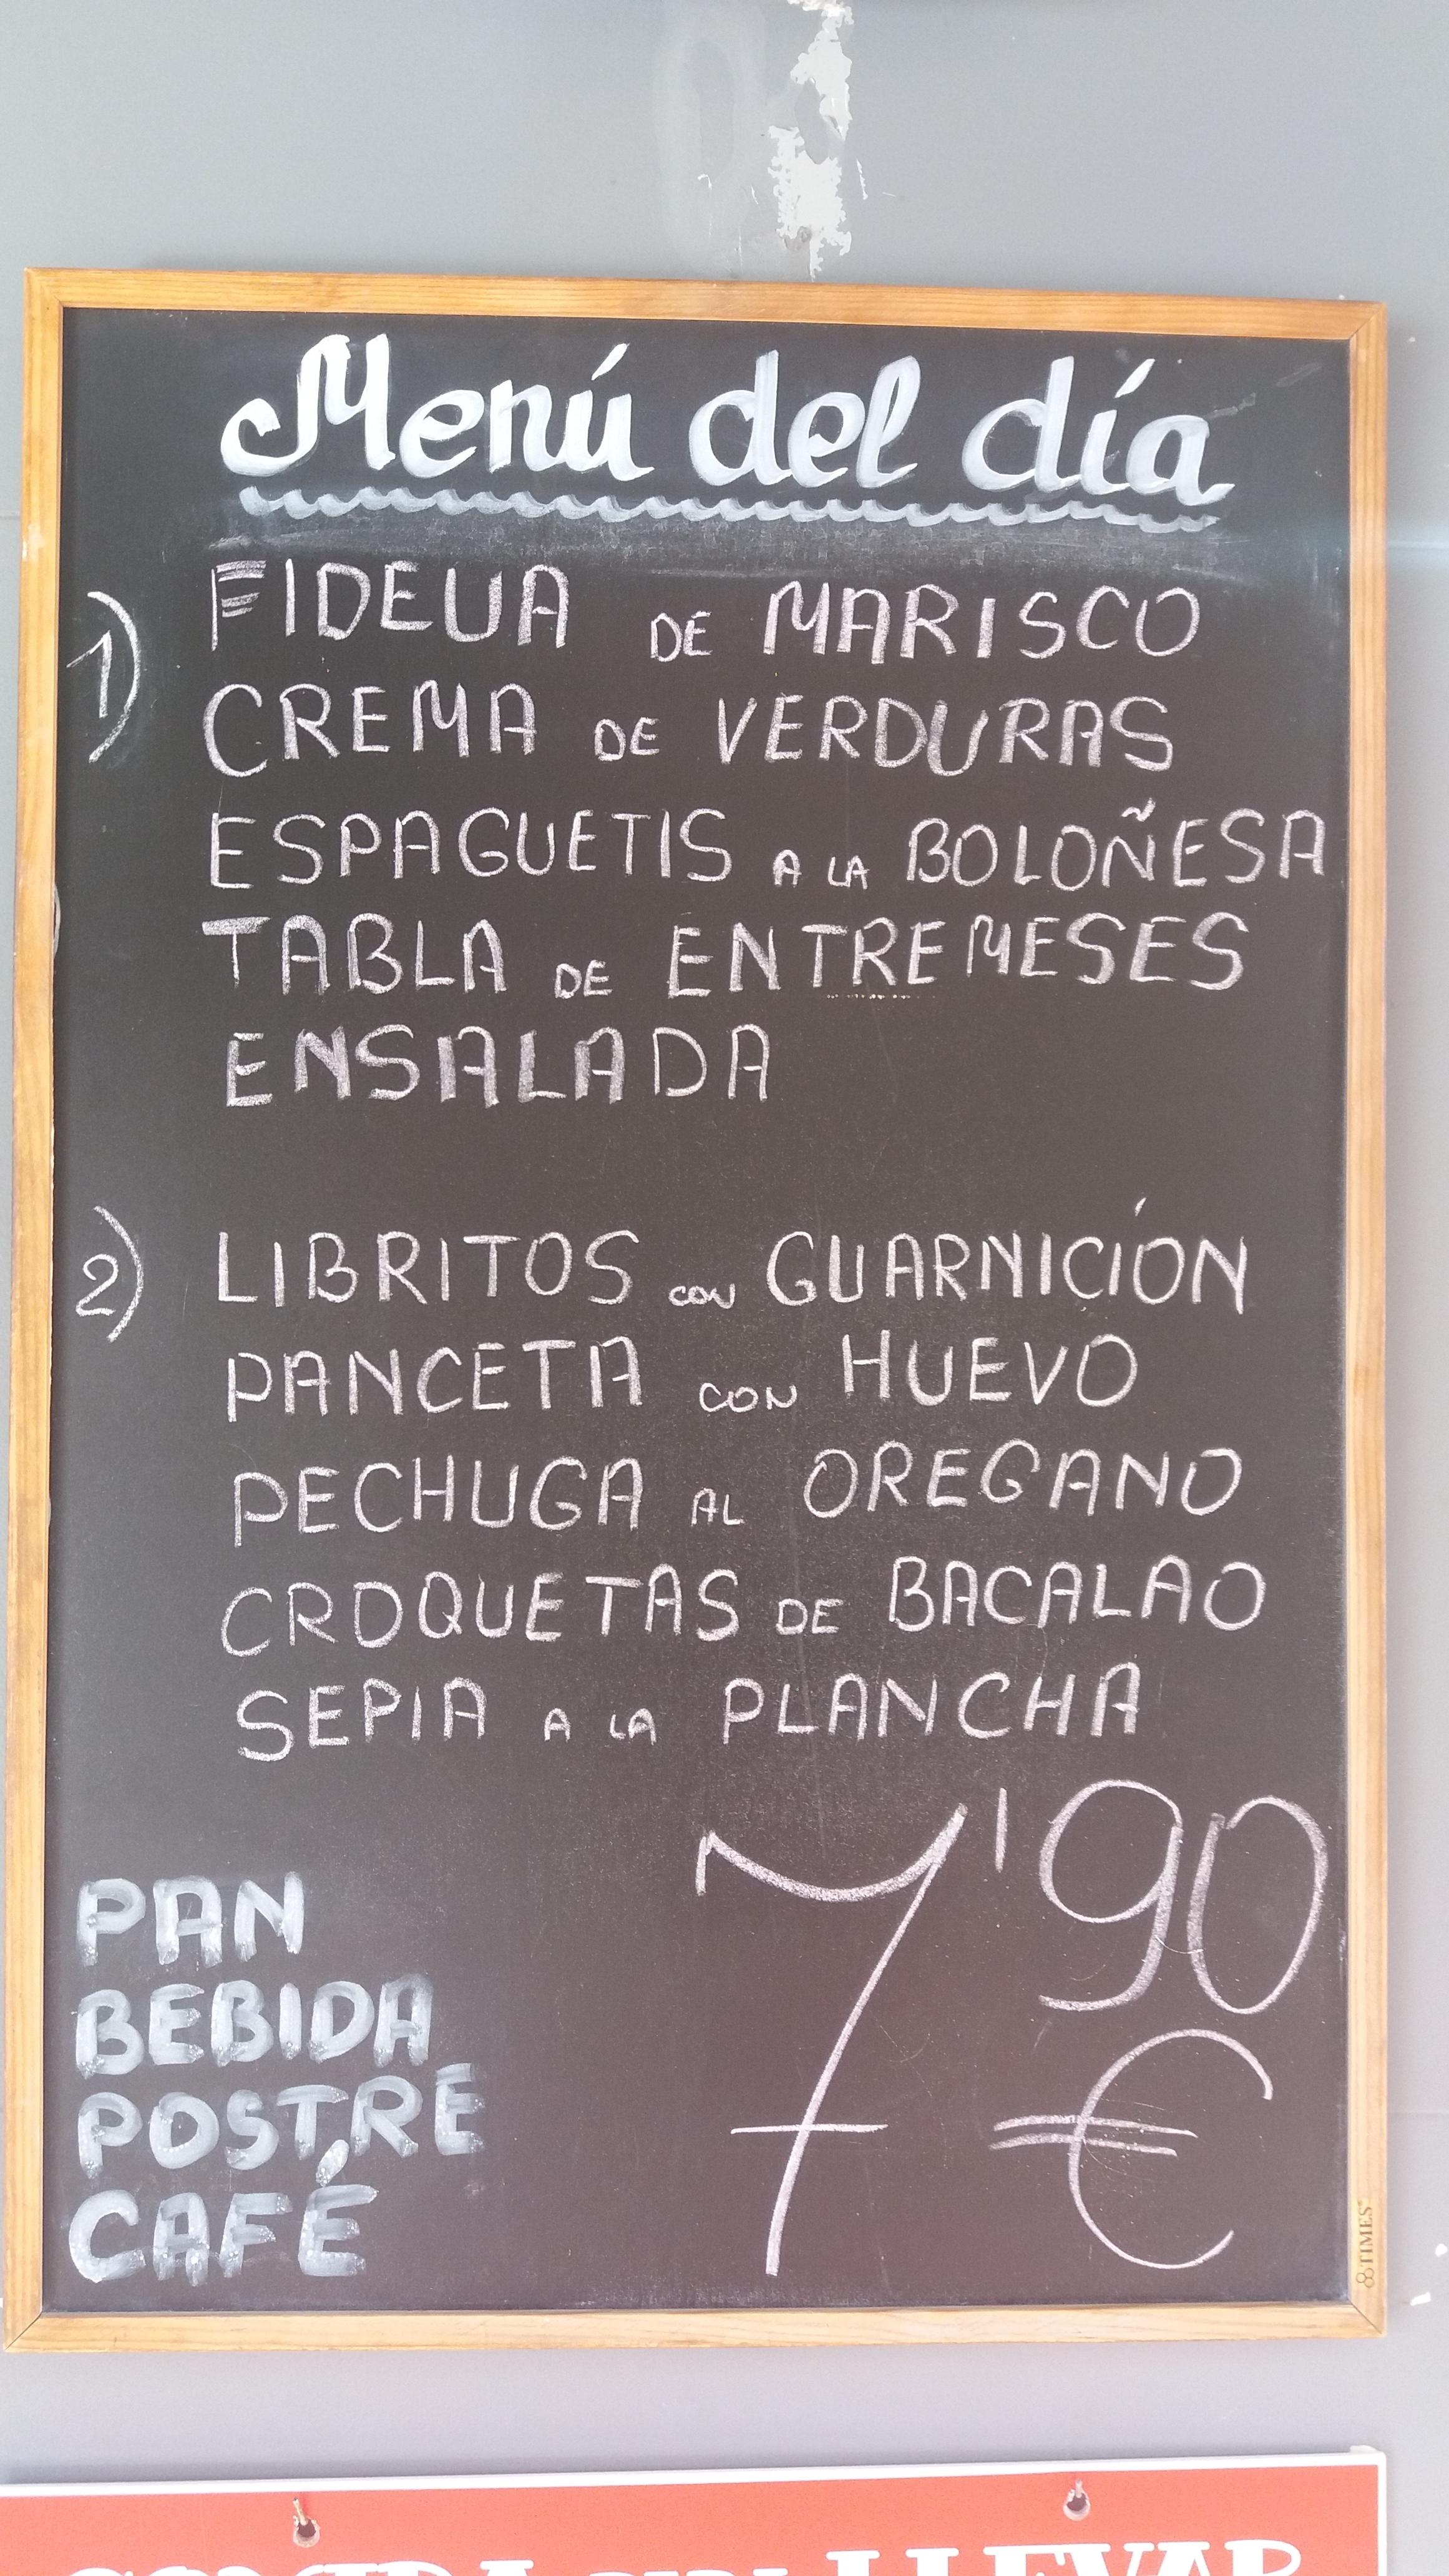 Menú del día
1) FIDEUA DE MARISCO
CREMA DE VERDURAS
ESPAGUETIS A LA BOLOÑESA
TABLA DE ENTREMESES
ENSALADA
2) LIBRITOS CON GUARNICIÓN
PANCETA CON HUEVO
PECHUGA AL OREGANO
CROQUETAS DE BACALAO
SEPIA A LA PLANCHA
7'90
€
PAN
BEBIDA
POSTRE
CAFÉ
TIMES
COMIDA PARA LLEVAR